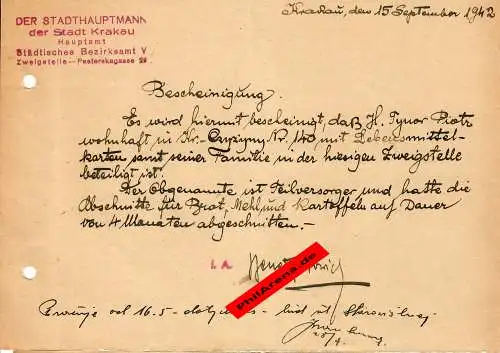 Krakau, den 15 September 1942
DER STADTHAUPTMANN
der Stadt Krakau
Hauptamt
Städtisches Bezirksamt V
Zweigstelle—Pasterskagasse 29
Bescheinigung.
Es wird hiermit bescheinigt, daß H. Tynor Piotr
wohnhaft in Kr.-Czyżyny Nr. 140 mit Lebensmittel-
karten samt seiner Familie in der hiesigen Zweigstelle
beteiligt ist.
Der Obgenannte ist Teilversorger und hatte die
Abschnitte für Brot, Mehl und Kartoffeln auf Dauer
von 4 Monaten abgeschnitten.-
I. A
PhilArena.de
od 16.5-